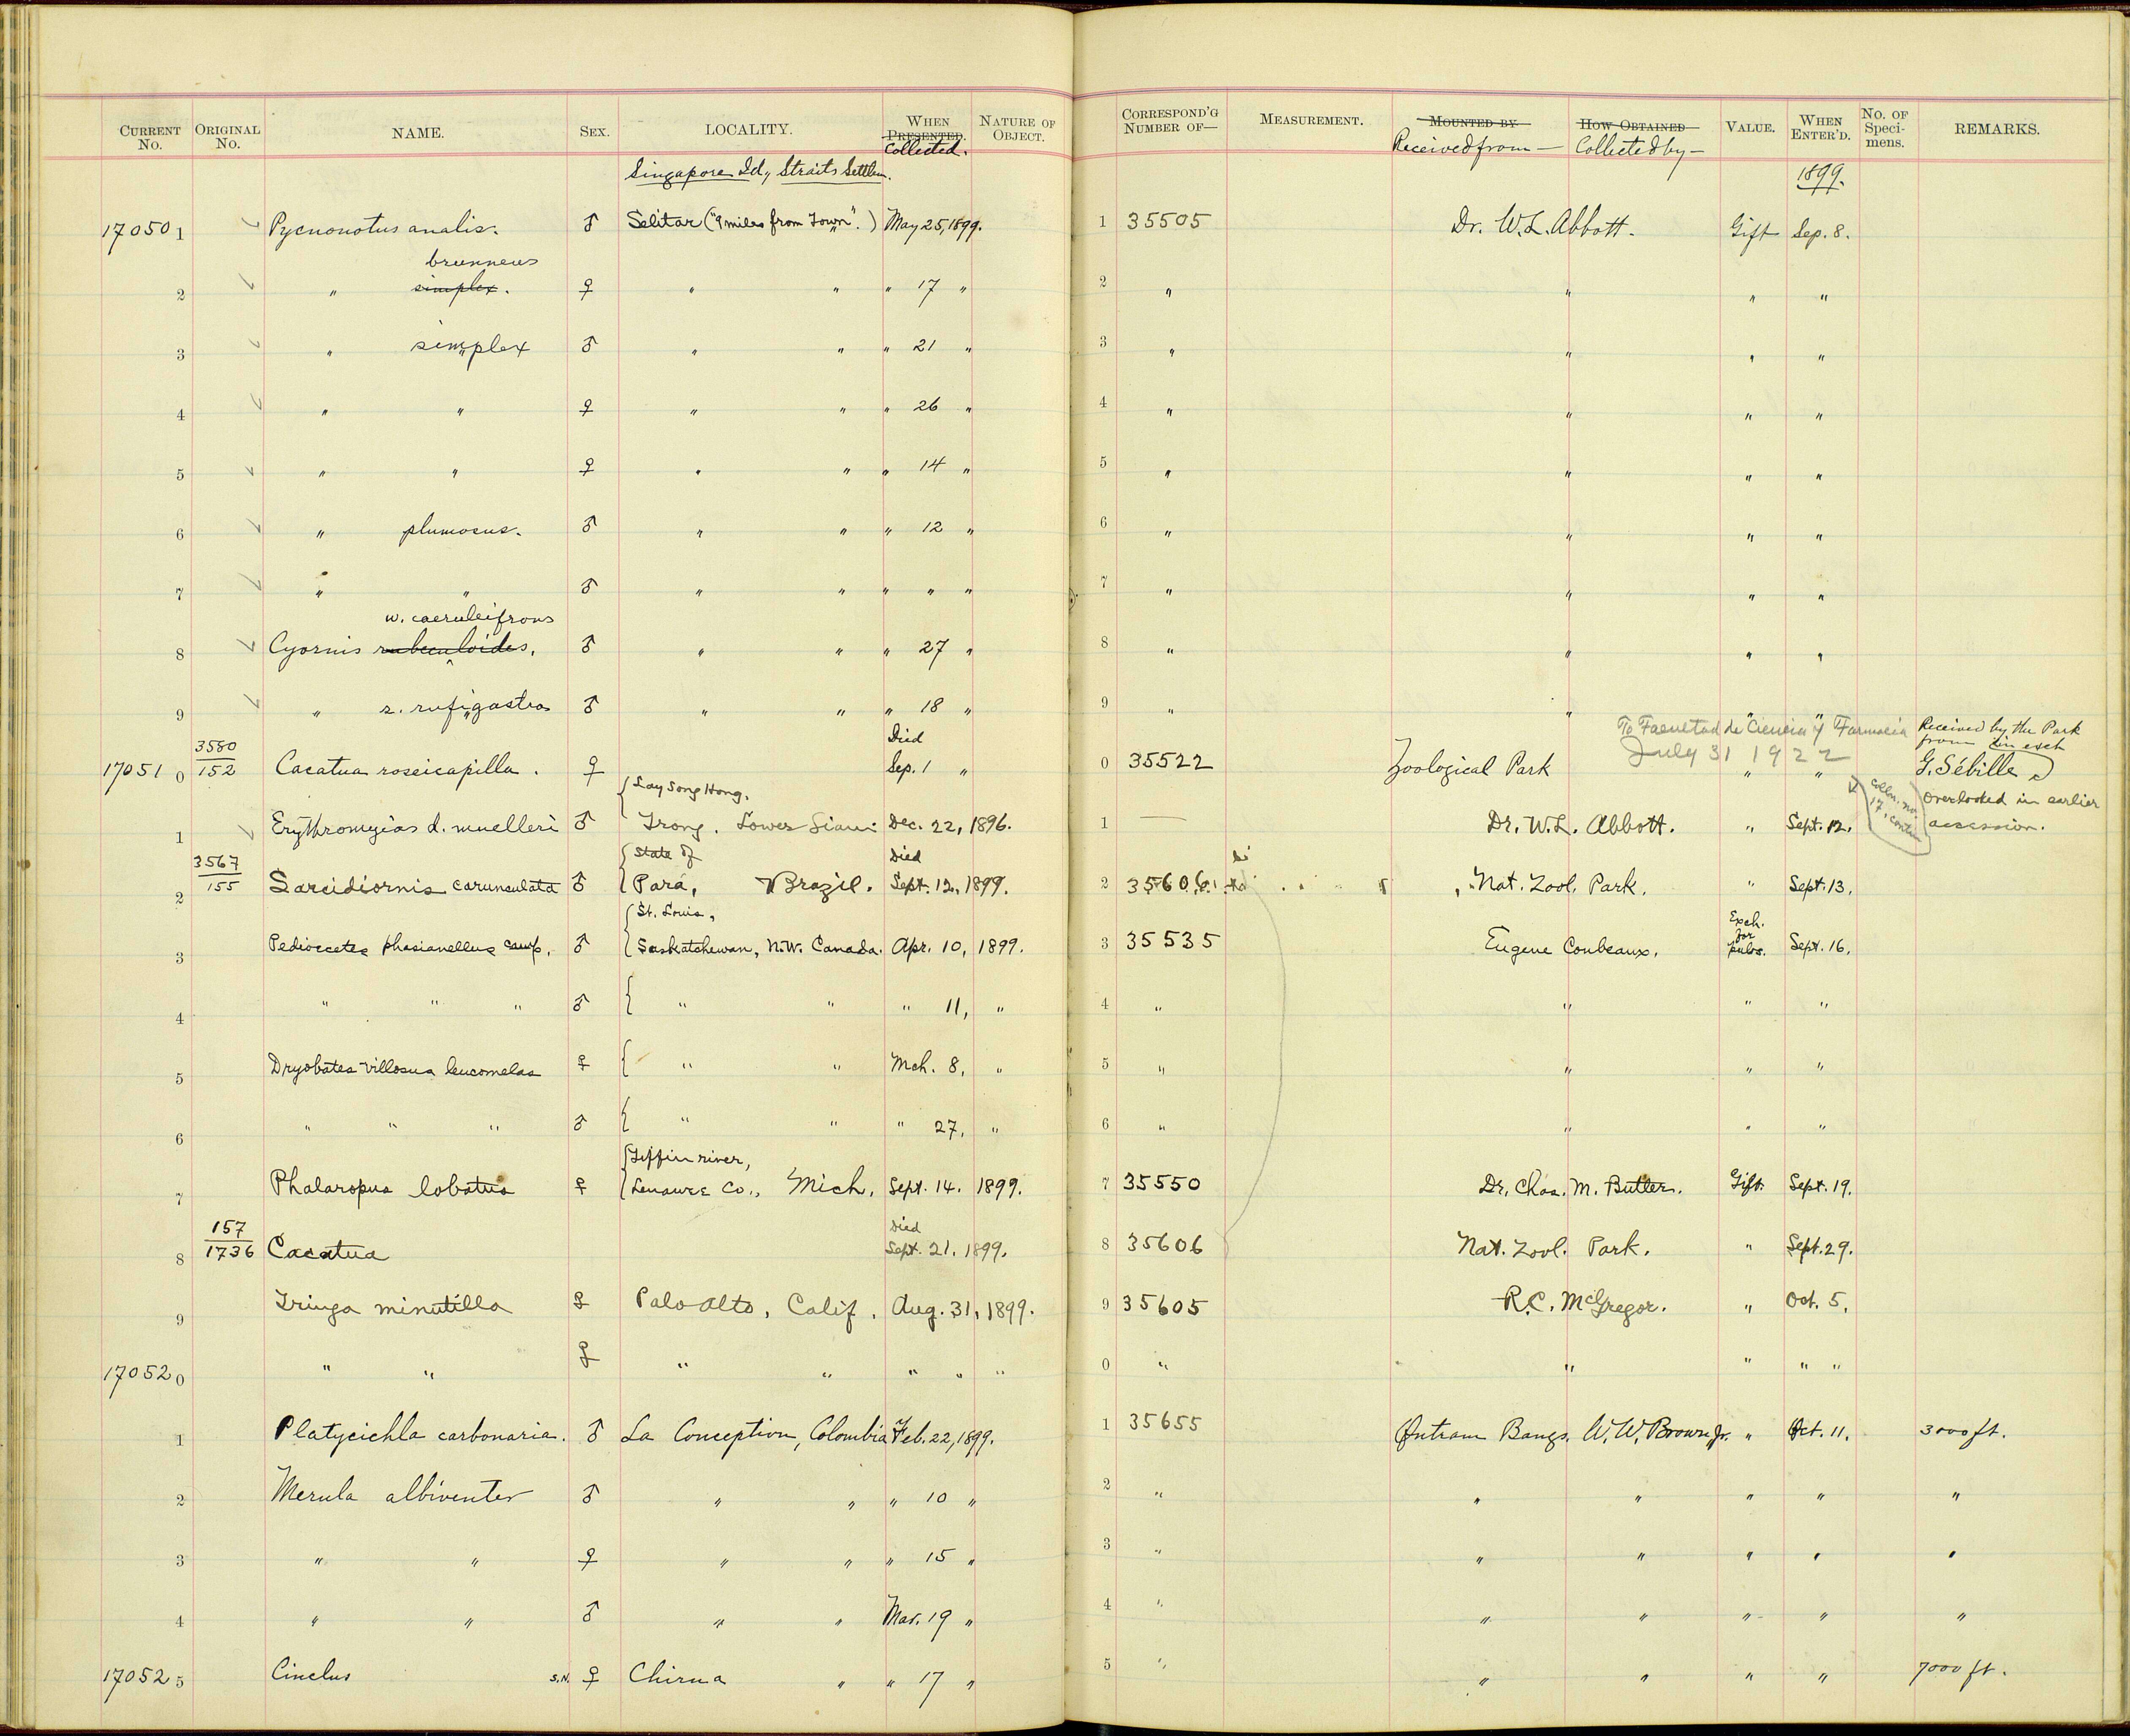 CURRENT No. ORIGINAL No. NAME. SEX. LOCALITY. WHEN PRESENTED. Collected. NATURE OF OBJECT. CORRESPOND'G NUMBER OF— MEASUREMENT. MOUNTED BY Received from— HOW OBTAINED Collected by— VALUE. WHEN ENTER'D. No. OF Speci-mens. REMARKS.
Singapore Id., Straits Settlem. 1899.
170501 Pycnonotus analis. ♂ Selitar ("9 miles from Town".) May 25, 1899. 1 35505 Dr. W.L. Abbott. Gift Sep. 8.
brunneus
2 " simplex. ♀ " " " 17 " 2 " " " "
3 " simplex ♂ " " " 21 " 3 " " " "
4 " " ♀ " " " 26 " 4 " " " "
5 " " ♀ " " " 14 " 5 " " " "
6 " plumosus. ♂ " " " 12 " 6 " " " "
7 " " ♂ " " " " " 7 " " " "
w. caeruleifrons
8 Cyornis rubeculoides. ♂ " " " 27 " 8 " " " "
9 " r. rufigastra ♂ " " " 18 " 9 " " " "
To Facultad de Ciencia y Farmacia Received by the Park
3580 Died July 31 1922 from in exch
17051 0 152 Cacatua roseicapilla. ♀ Sep. 1 " 0 35522 Zoological Park " " G. Sébille
Lay Song Hong. Overlooked in earlier
1 Erythromyias d. muelleri ♂ Trong. Lower Siam Dec. 22, 1896. 1 — Dr. W.L. Abbott. " Sept. 12. accession.
3567 State of Died
2 155 Sarcidiornis carunculata ♂ Pará, Brazil. Sept. 12, 1899. 2 35606 Nat. Zool. Park. " Sept. 13.
St. Louis, Exch. for
3 Pedioecetes phasianellus camp. ♂ Saskatchewan, N.W. Canada. Apr. 10, 1899. 3 35535 Eugene Coubeaux. pubs. Sept. 16.
4 " " " ♂ " " " 11, " 4 " " " "
5 Dryobates villosus leucomelas ♀ " " Mch. 8, " 5 " " " "
6 " " " ♂ " " " 27, " 6 " " " "
Tiffin river,
7 Phalaropus lobatus ♀ Lenawee Co., Mich. Sept. 14. 1899. 7 35550 Dr. Chas. M. Butler. Gift. Sept. 19.
157 Died
8 1736 Cacatua Sept. 21. 1899. 8 35606 Nat. Zool. Park. " Sept. 29.
9 Tringa minutilla ♀ Palo Alto, Calif. Aug. 31, 1899. 9 35605 R.C. McGregor. " Oct. 5.
17052 0 " " ♀ " " " " " 0 " " " " "
1 Platycichla carbonaria. ♂ La Conception, Colombia Feb. 22, 1899. 1 35655 Outram Bangs. W.W. Brown, Jr. " Oct. 11. 3000 ft.
2 Merula albiventer ♂ " " " 10 " 2 " " " " " "
3 " " ♀ " " " 15 " 3 " " " " " "
4 " " ♂ " " Mar. 19 " 4 " " " " " "
17052 5 Cinclus S.N. ♀ Chirua " " 17 " 5 " " " " " 7000 ft.